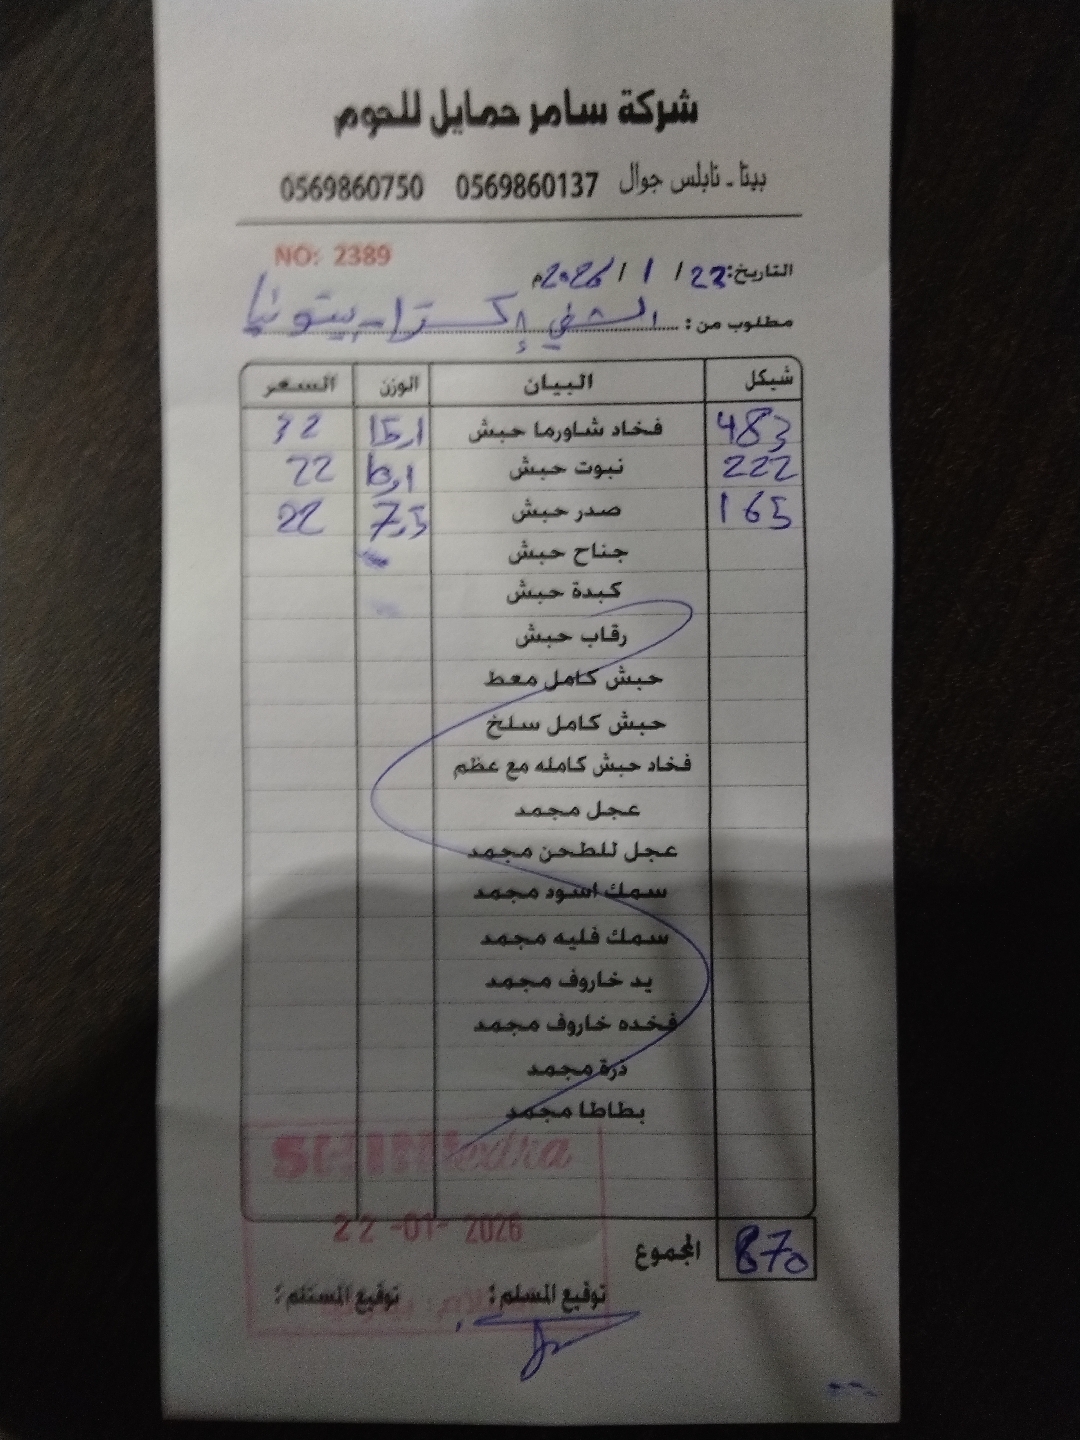 شركة سامر حمايل للحوم
بيتا - نابلس جوال 0569860137 0569860750
NO: 2389
التاريخ: 22 / 1 / 2026م
مطلوب من: الشني إكسترا - بيتونيا
شيكل البيان الوزن السعر
483 فخاد شاورما حبش 15,1 32
222 نبوت حبش 10,1 22
165 صدر حبش 7,5 22
جناح حبش
كبدة حبش
رقاب حبش
حبش كامل معط
حبش كامل سلخ
فخاد حبش كامله مع عظم
عجل مجمد
عجل للطحن مجمد
سمك اسود مجمد
سمك فليه مجمد
يد خاروف مجمد
فخده خاروف مجمد
ذرة مجمد
بطاطا مجمد
22 -01- 2026
المجموع 870
توقيع المسلم: توقيع المستلم: